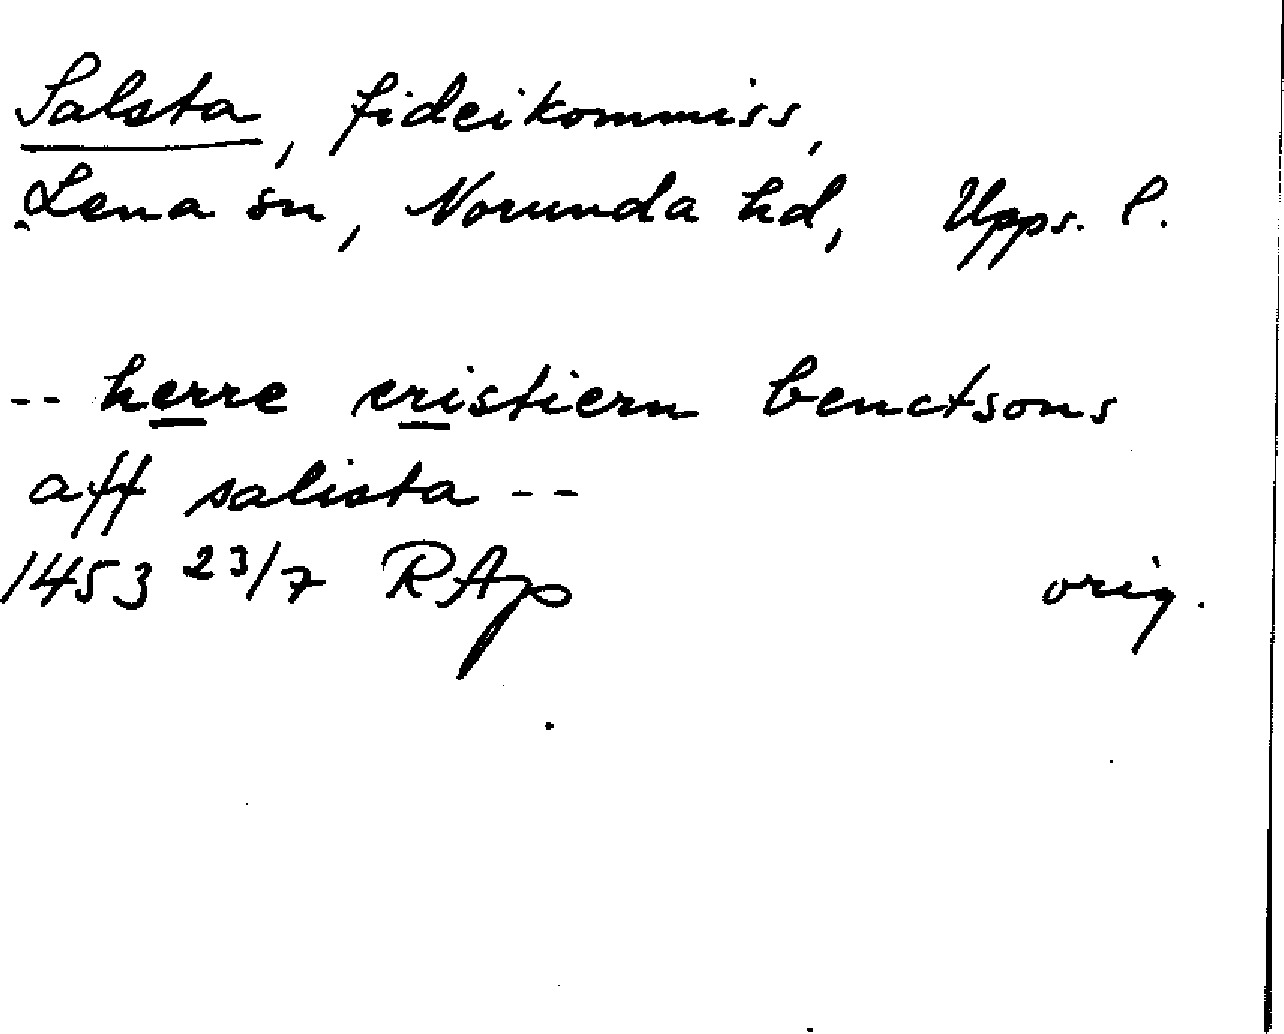 Salsta, fideikommiss,
Lena sn, Norunda hd, Upps. l.
-- herre cristiern benctsons
aff salista --
1453 23/7 RAp orig.